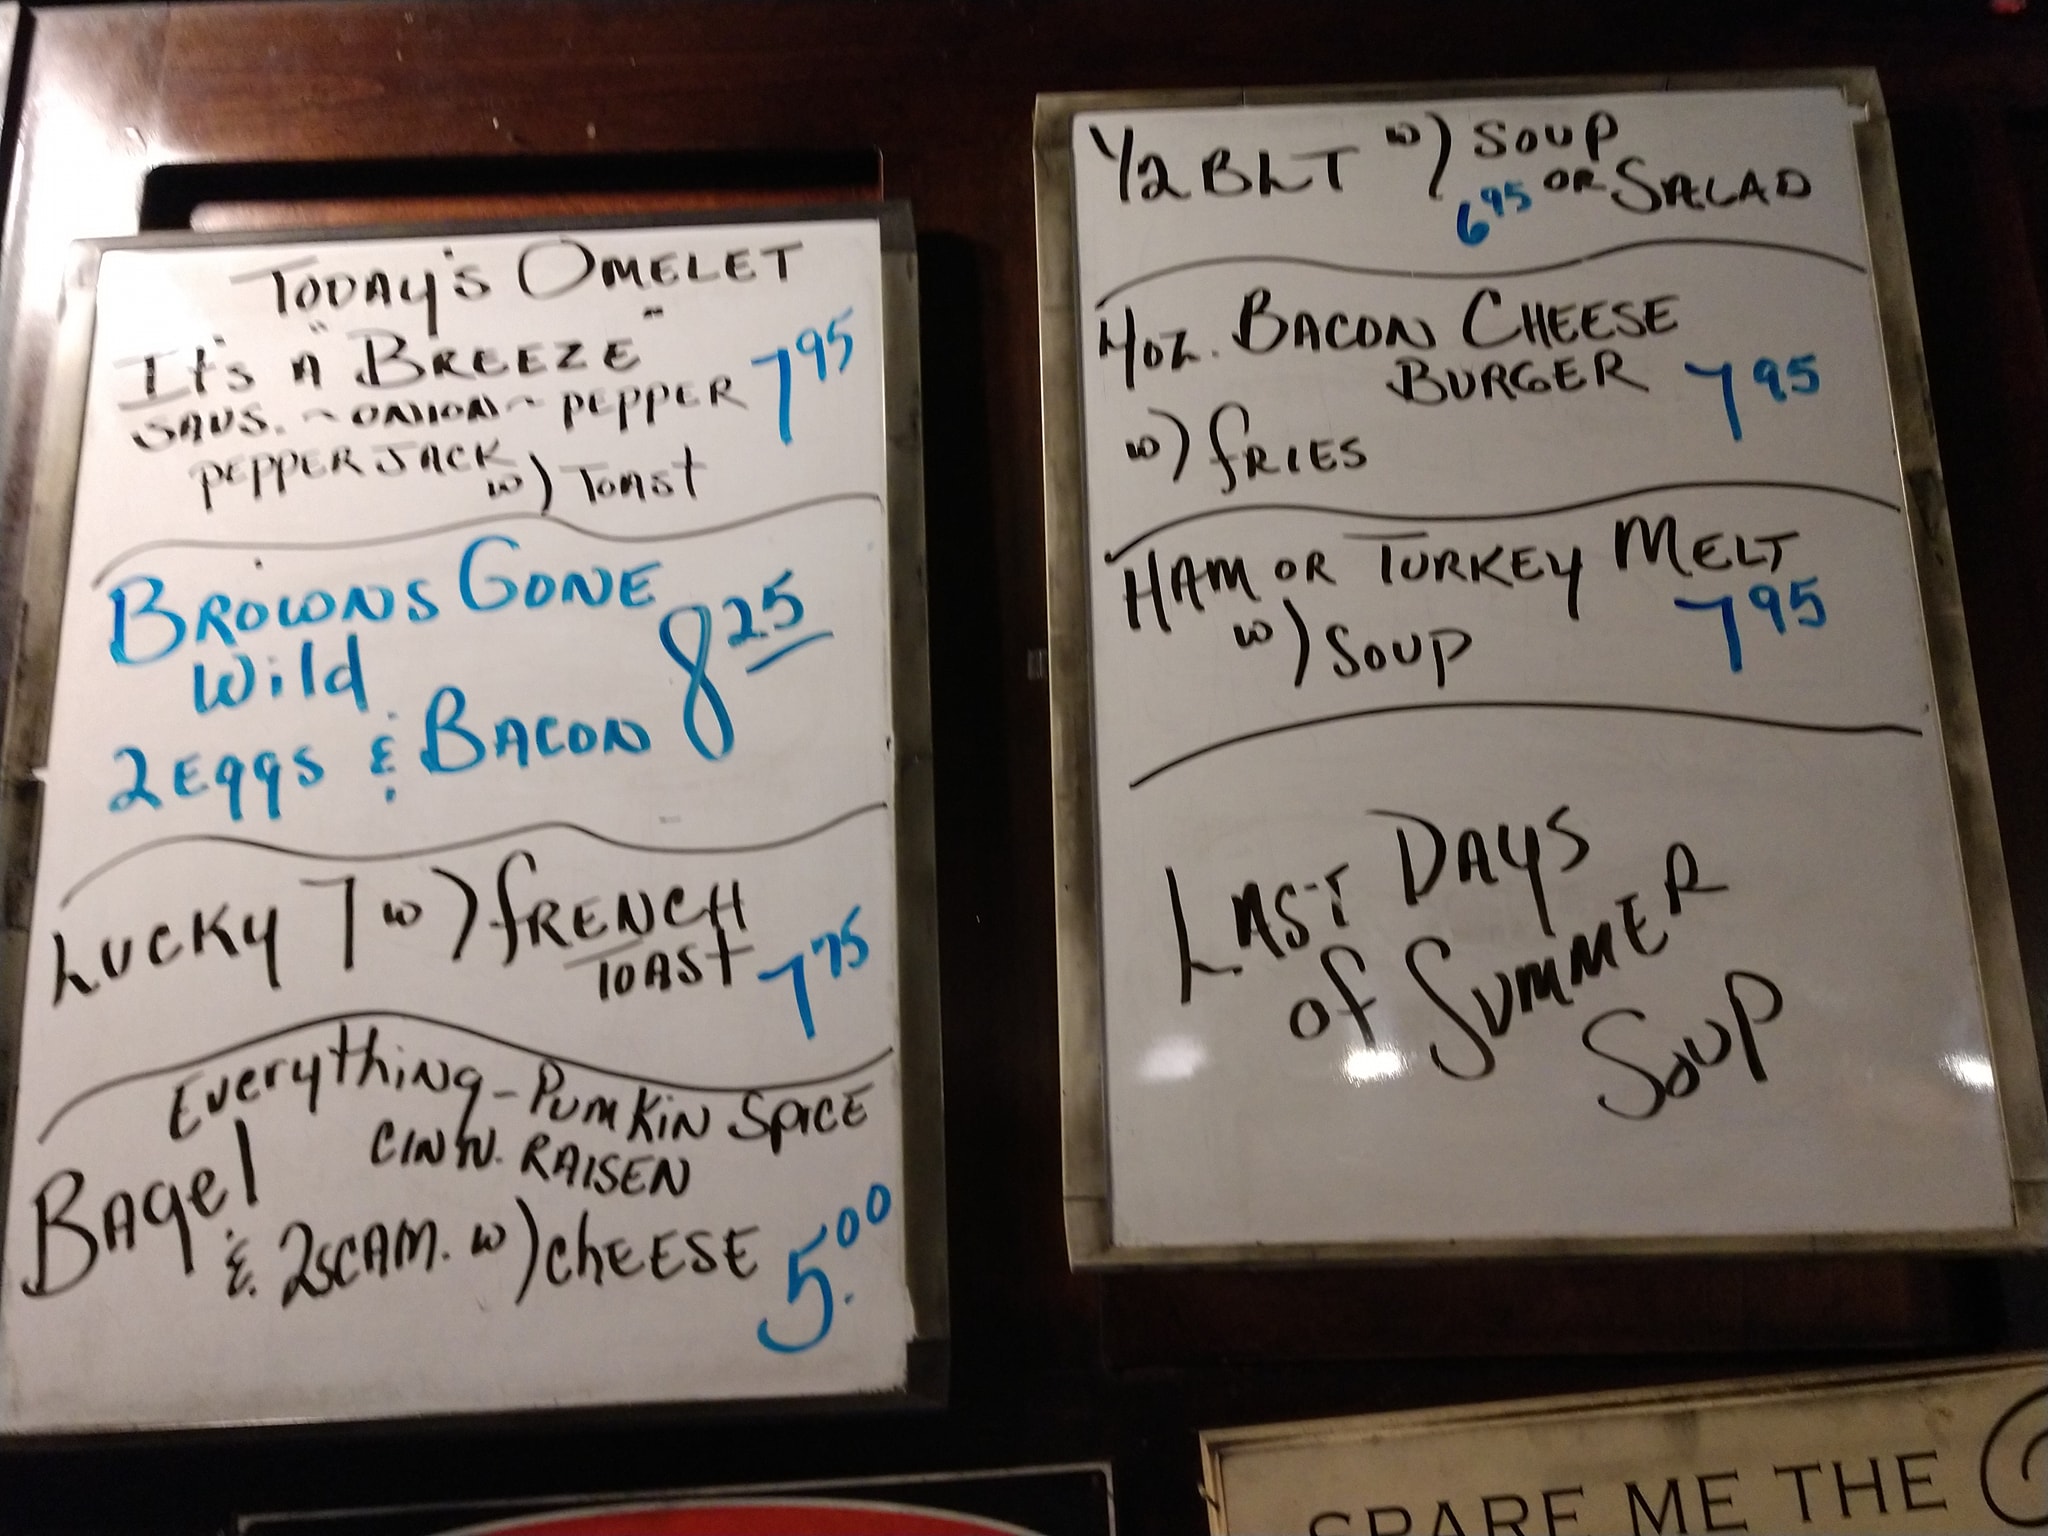 TODAY'S OMELET
It's A "BREEZE"
SAUS. ~ ONION ~ PEPPER 7 95
PEPPER JACK
w) TOAST
BROWNS GONE
Wild
2 EGGS & BACON 8 25
LUCKY 7 w) fRENCH
TOAST 7 75
Everything - PUMKIN SPICE
CINN. RAISEN
BAgel
& 2 SCAM. w) ChEESE 5.00
1/2 BLT w) SOUP
OR SALAD
6 95
4oz. BACON CHEESE
BURGER 7 95
w) fRIES
HAM OR TURKEY MELT
w) SOUP 7 95
LAST DAYS
of SUMMER
SOUP
SPARE ME THE